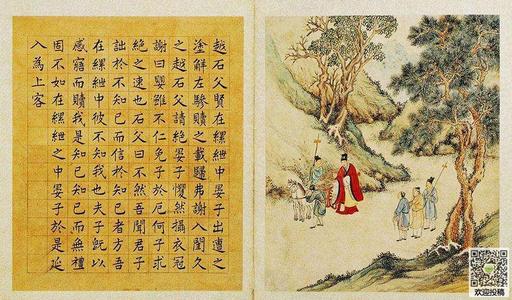 越石父賢在縲紲中晏子出遭之
塗解左驂贖之載歸弗謝入閨久
之越石父請絕晏子戄然攝衣冠
謝曰嬰雖不仁免子於厄何子求
絕之速也石父曰不然吾聞君子
詘於不知己而信於知己者方吾
在縲紲中彼不知我也夫子既以
感寤而贖我是知己知己而無禮
固不如在縲紲之中晏子於是延
入為上客
欢迎投稿